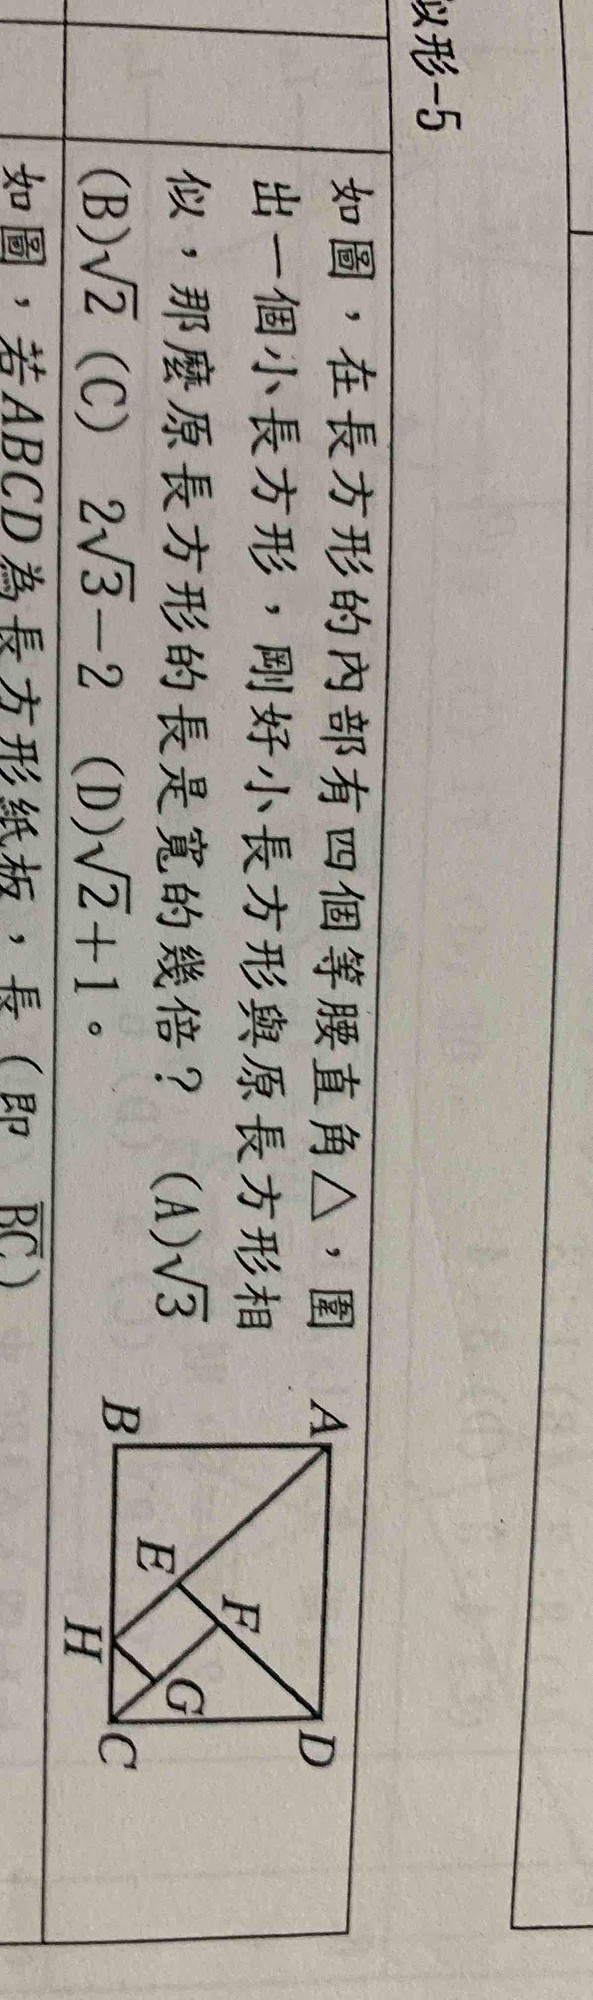 似形-5
如圖，在長方形的內部有四個等腰直角△，圍
出一個小長方形，剛好小長方形與原長方形相
似，那麼原長方形的長是寬的幾倍？ (A)√3
(B)√2 (C) 2√3-2 (D)√2+1。
A
D
E
F
G
B
H
C
如圖，若ABCD為長方形紙板，長（即 BC）